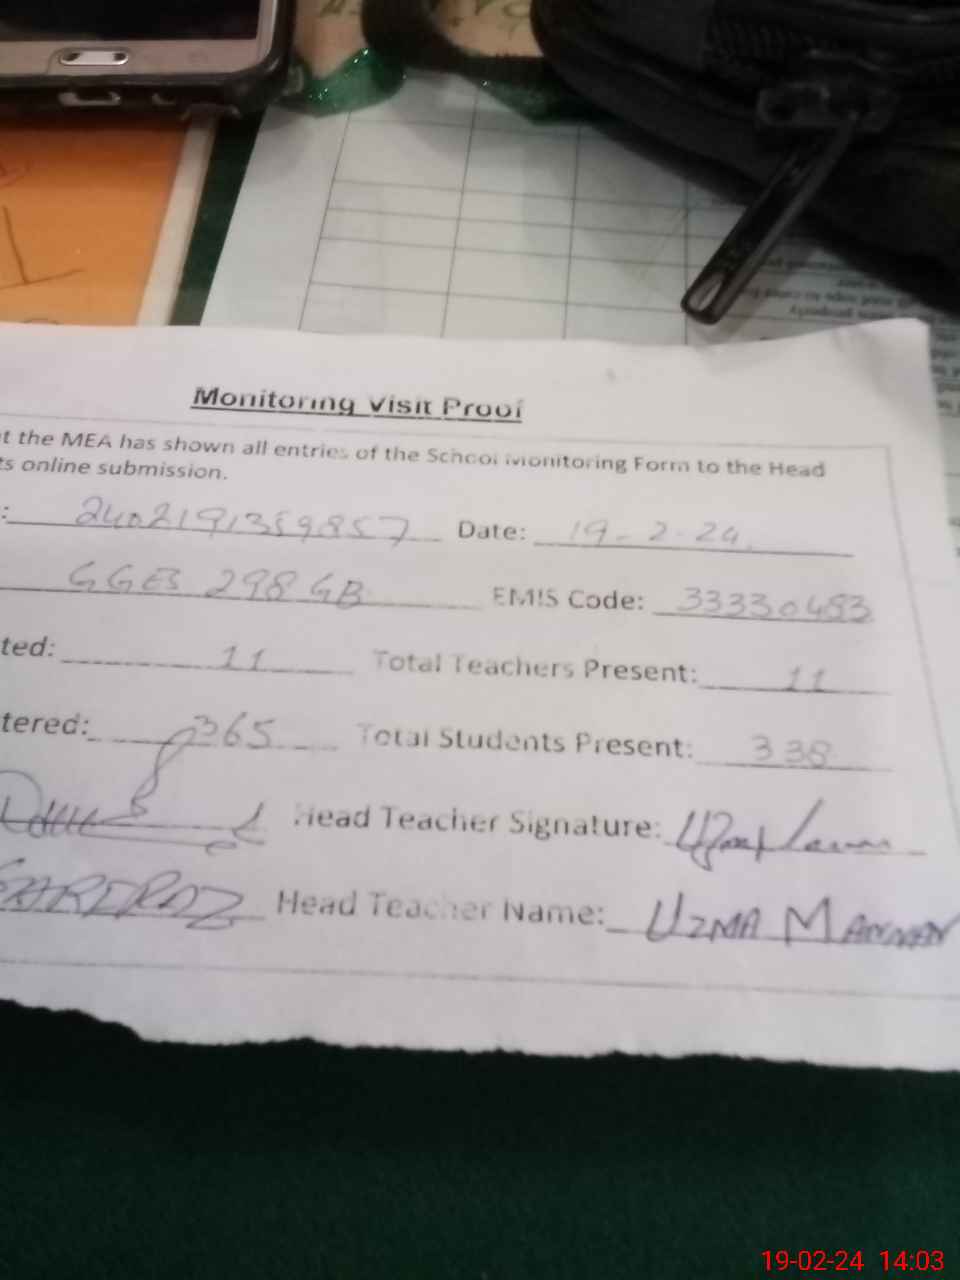 Monitoring Visit Proof
t the MEA has shown all entries of the School Monitoring Form to the Head
ts online submission.
: 2402191359857 Date: 19-2-24
GGES 298 GB EMIS Code: 33330483
ted: 11 Total Teachers Present: 11
tered: 365 Total Students Present: 338
Head Teacher Signature:
SARFRAZ Head Teacher Name: UZMA MANNAN
19-02-24 14:03